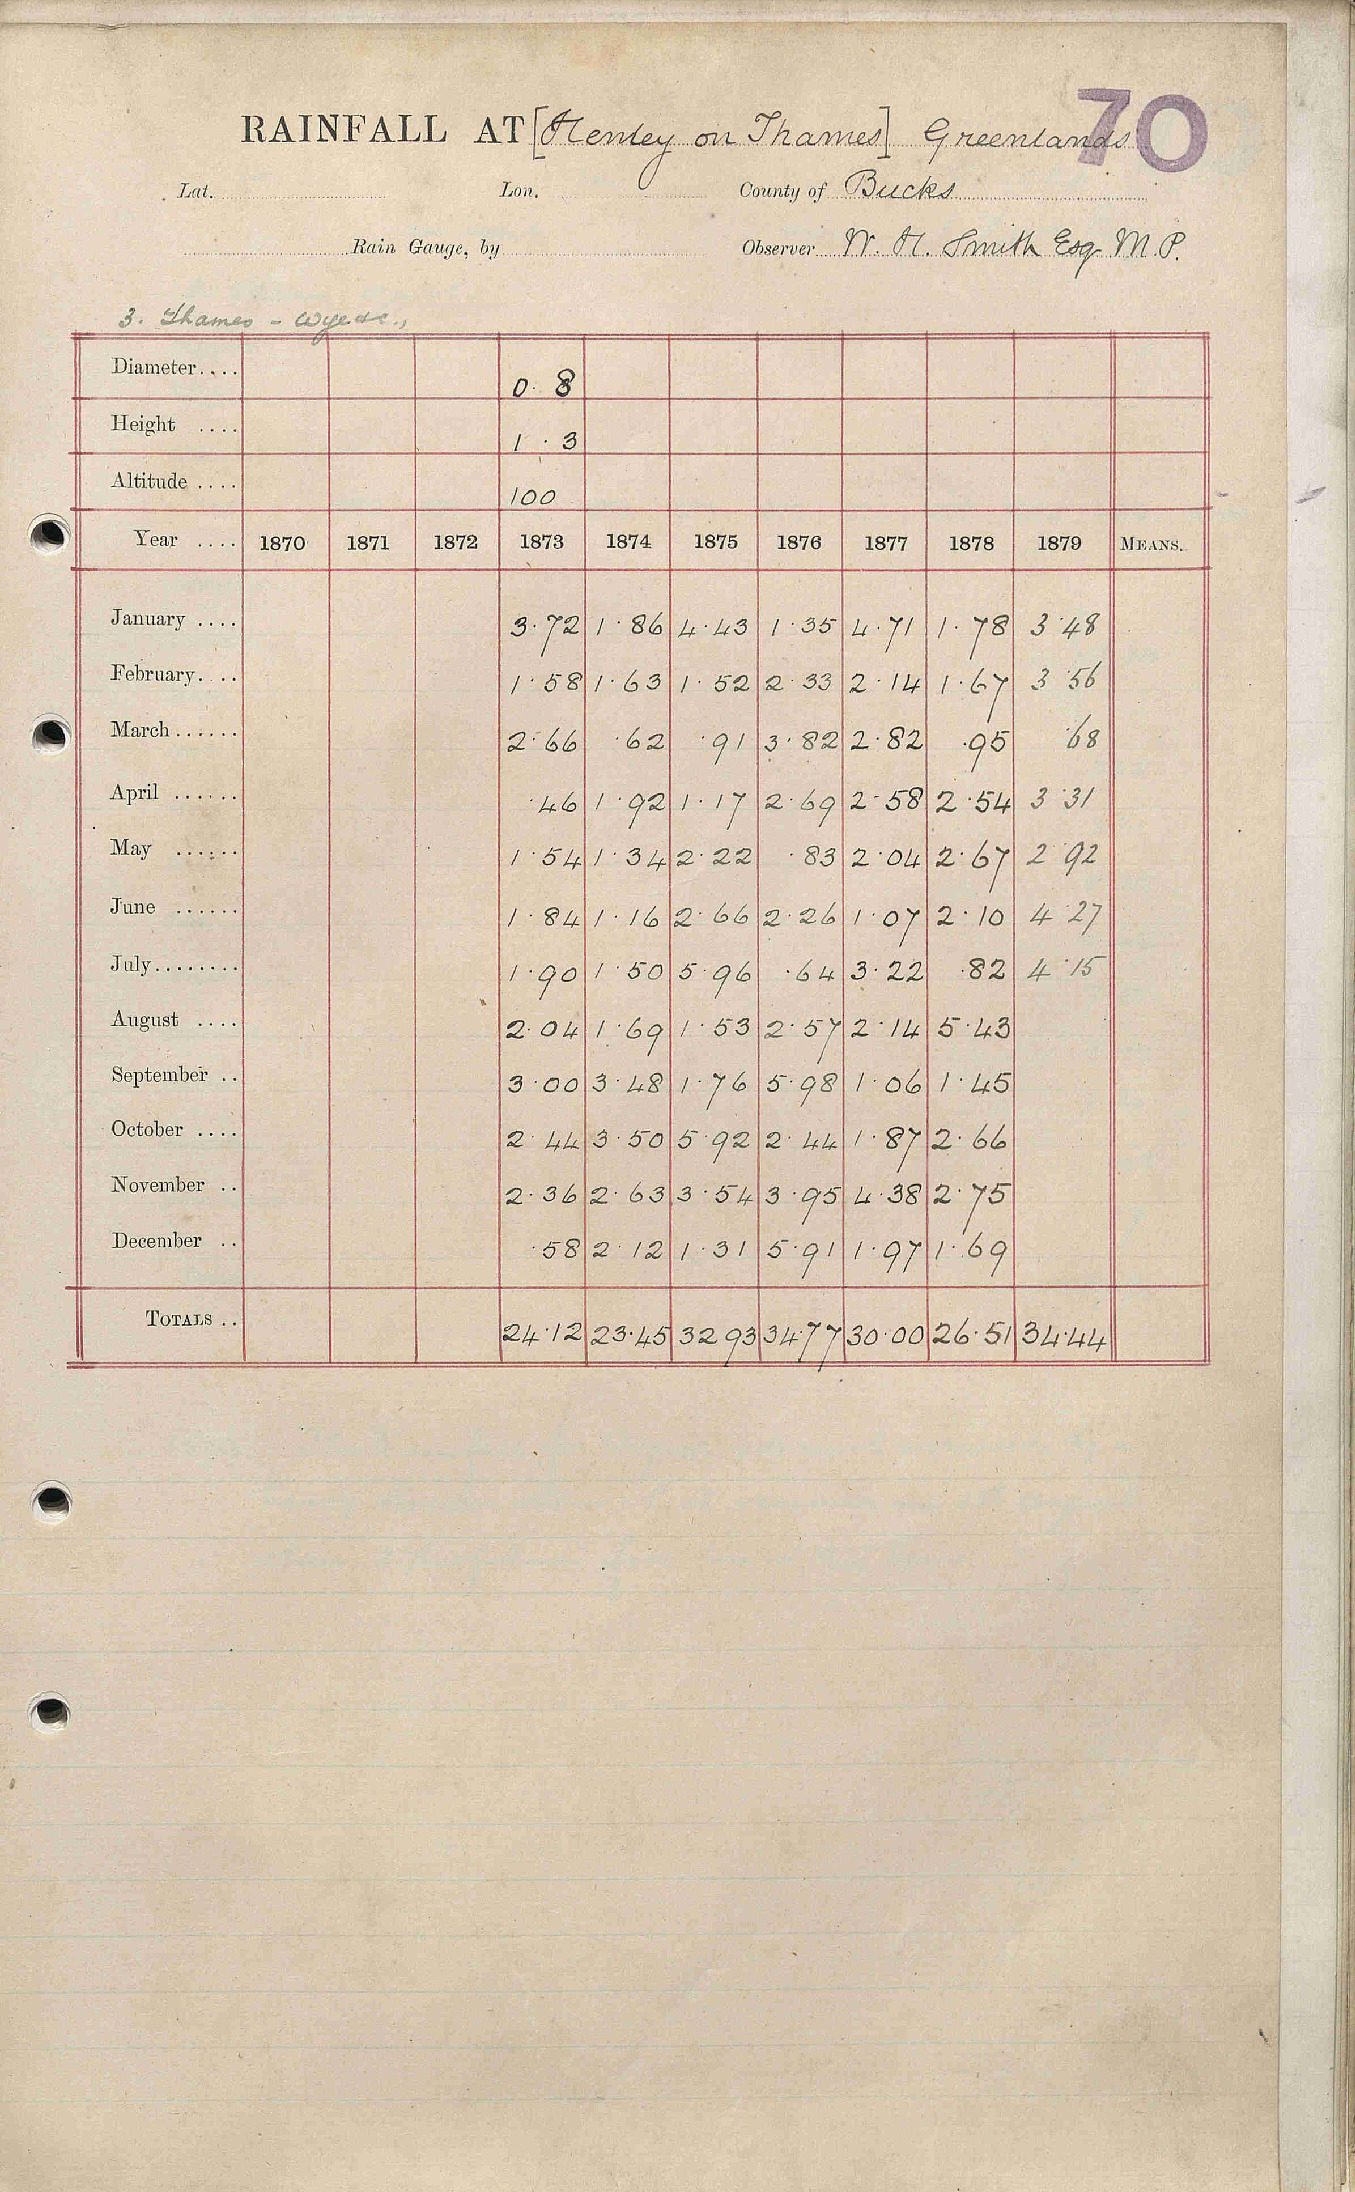 70
RAINFALL AT [Henley on Thames] Greenlands
Lat. Lon. County of Bucks
Rain Gauge, by Observer W. H. Smith Esq M.P.
3. Thames - Wye &c.,
Diameter.... 0. 8
Height .... 1. 3
Altitude .... 100
Year .... 1870 1871 1872 1873 1874 1875 1876 1877 1878 1879 MEANS.
January .... 3.72 1.86 4.43 1.35 4.71 1.78 3.48
February.... 1.58 1.63 1.52 2.33 2.14 1.67 3.56
March...... 2.66 .62 .91 3.82 2.82 .95 .68
April ...... .46 1.92 1.17 2.69 2.58 2.54 3.31
May ...... 1.54 1.34 2.22 .83 2.04 2.67 2.92
June ...... 1.84 1.16 2.66 2.26 1.07 2.10 4.27
July........ 1.90 1.50 5.96 .64 3.22 .82 4.15
August .... 2.04 1.69 1.53 2.57 2.14 5.43
September .. 3.00 3.48 1.76 5.98 1.06 1.45
October .... 2.44 3.50 5.92 2.44 1.87 2.66
November .. 2.36 2.63 3.54 3.95 4.38 2.75
December .. .58 2.12 1.31 5.91 1.97 1.69
TOTALS .. 24.12 23.45 32 93 34.77 30.00 26.51 34.44